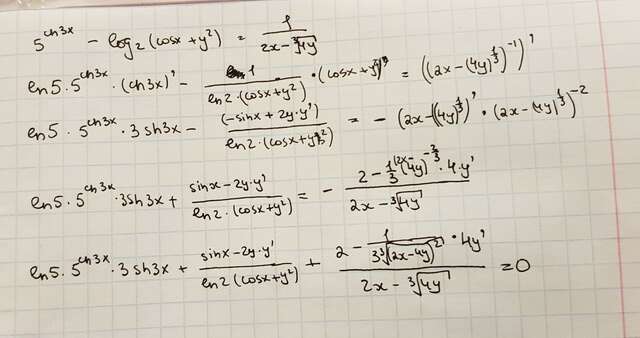 5^{ch3x} - log_2(cosx+y^2) = 1/(2x-∛4y)
ln5·5^{ch3x}·(ch3x)' - 1/(ln2·(cosx+y^2))·(cosx+y^2)' = ((2x-(4y)^{1/3})^{-1})'
ln5·5^{ch3x}·3sh3x - (-sinx+2y·y')/(ln2·(cosx+y^2)) = -(2x-(4y)^{1/3})'·(2x-(4y)^{1/3})^{-2}
ln5·5^{ch3x}·3sh3x + (sinx-2y·y')/(ln2·(cosx+y^2)) = - (2-1/3(2x-4y)^{-2/3}·4·y')/(2x-∛4y)
ln5·5^{ch3x}·3sh3x + (sinx-2y·y')/(ln2(cosx+y^2)) + (2-1/(3∛(2x-4y)^2)·4y')/(2x-∛4y) = 0